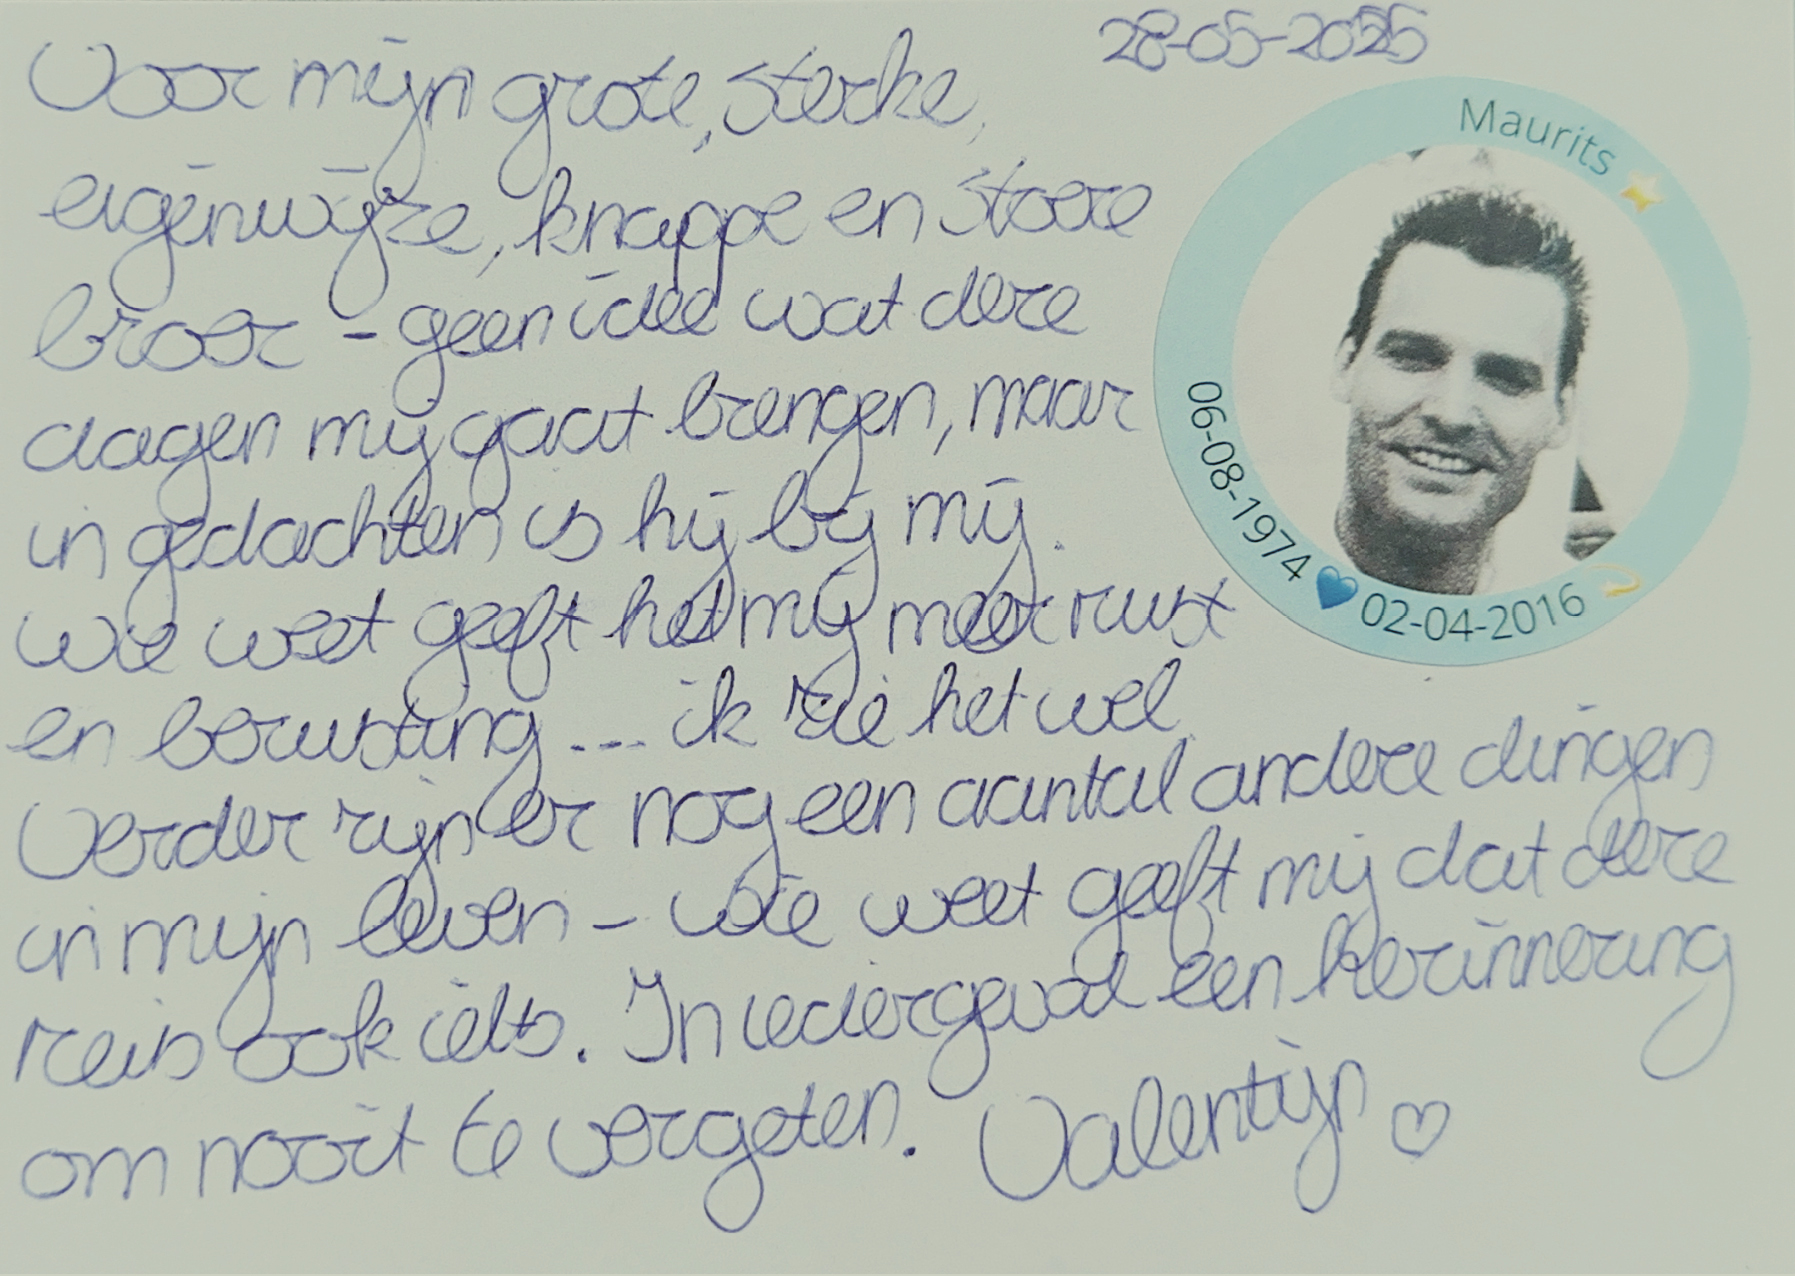 28-05-2025
Voor mijn grote, sterke,
eigenwijze, knappe en stoere
broer - geen idee wat deze
dagen mij gaat brengen, maar
in gedachten is hij bij mij.
Wie weet geeft het mij meer rust
en berusting... ik zie het wel.
Verder zijn er nog een aantal andere dingen
in mijn leven - wie weet geeft mij dat deze
reis ook iets. In iedergeval een herinnering
om nooit te vergeten. Valentijn ♡
Maurits ⭐
06-08-1974 💙 02-04-2016 💫